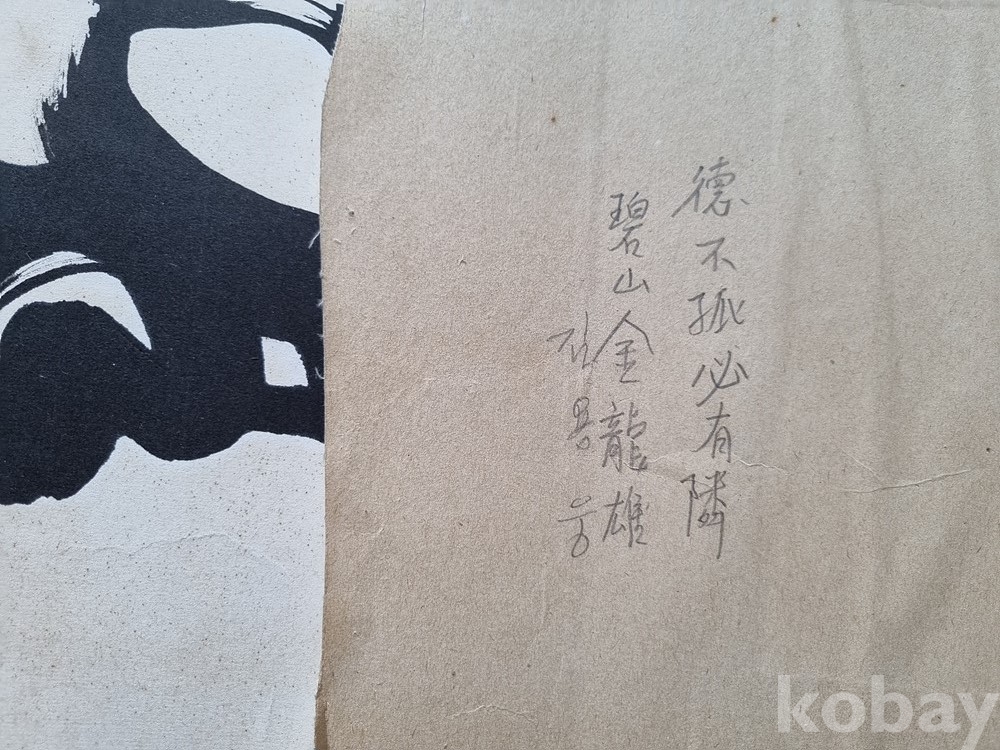 德不孤必有隣
碧山金龍雄
김용웅
kobay